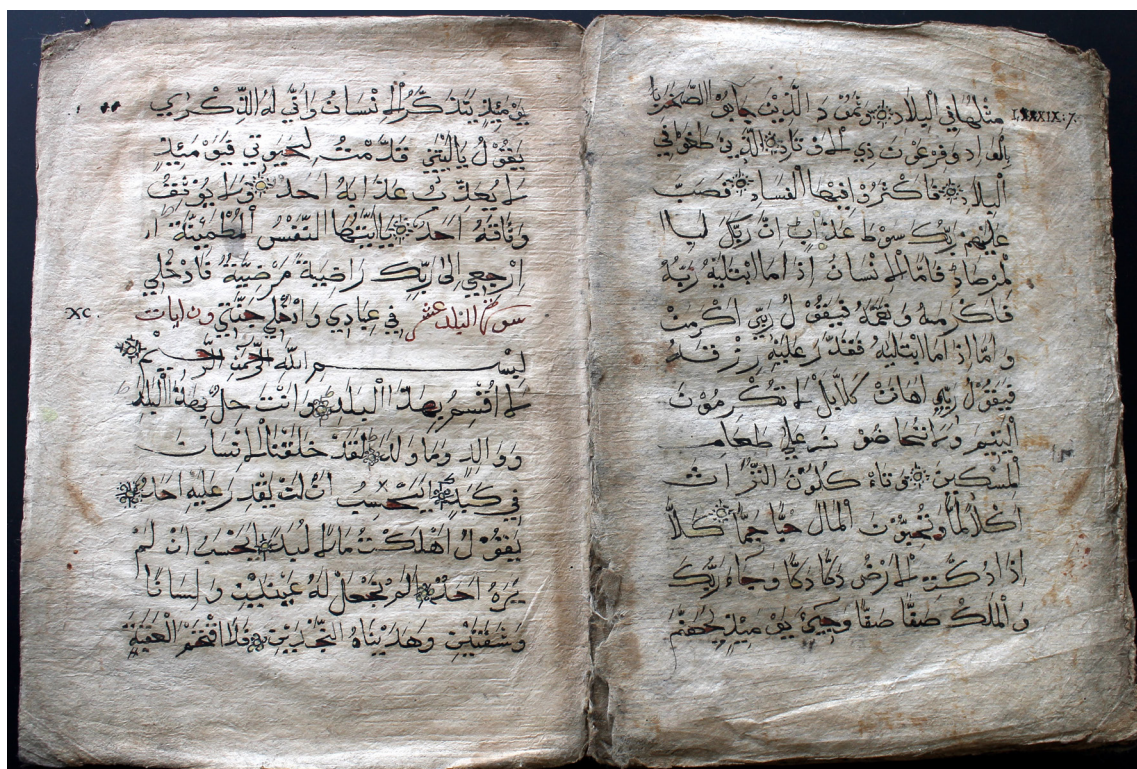 مِثْلُهَا فِي الْبِلَادِ وَثَمُوْدَ الَّذِيْنَ جَابُوْ الصَّخْرَ با LXXXIX:7.
وَفِرْعَوْنَ ذِي الْاَوْتَادِ الَّذِيْنَ طَغَوْا فِي
الْبِلَادِ فَاَكْثَرُوْا فِيْهَا الْفَسَادَ فَصَبَّ
عَلَيْهِمْ رَبُّكَ سَوْطَ عَذَابٍ اِنَّ رَبَّكَ لَبِا
لْمِرْصَادِ فَاَمَّا الْاِنْسَانُ اِذَا مَا ابْتَلَيْهُ رَبُّهُ
فَاَكْرَمَهُ وَنَعَّمَهُ فَيَقُوْلُ رَبِّي اَكْرَمَنْ
وَاَمَّا اِذَا مَا ابْتَلَيْهُ فَقَدَّرَ عَلَيْهِ رِزْقَهُ
فَيَقُوْلُ رَبِّي اَهَانَنْ كَلَّا بَلْ لَا تُكْرِمُوْنَ
الْيَتِيْمَ وَلَا تَحَاضُّوْنَ عَلَي طَعَامِ
الْمِسْكِيْنِ وَتَاْكُلُوْنَ التُّرَاثَ
اَكْلًا لَمًّا وَتُحِبُّوْنَ الْمَالَ حُبًّا جَمًّا كَلَّا
اِذَا دُكَّتِ الْاَرْضُ دَكًّا دَكًّا وَجَاءَ رَبُّكَ
وَالْمَلَكُ صَفًّا صَفًّا وَجِيْئَ يَوْمَئِذٍ بِجَهَنَّمَ
يَوْمَئِذٍ يَتَذَكَّرُ الْاِنْسَانُ وَاَنَّي لَهُ الذِّكْرَي
يَقُوْلُ يَالَيْتَنِي قَدَّمْتُ لِحَيَوتِي فَيَوْمَئِذٍ
لَا يُعَذِّبُ عَذَابَهُ اَحَدٌ وَلَا يُوْثِقُ
وَثَاقَهُ اَحَدٌ يَااَيَّتُهَا النَّفْسُ الْمُطْمَئِنَّةُ
اِرْجِعِي اِلَي رَبِّكِ رَاضِيَةً مَرْضِيَّةً فَادْخُلِي
XC. فِي عِبَادِي وَادْخُلِي جَنَّتِي سورة البلد عشرون ايات
بِسْمِ اللّٰهِ الرَّحْمٰنِ الرَّحِيْمِ
لَا اُقْسِمُ بِهَذَا الْبَلَدِ وَاَنْتَ حِلٌّ بِهَذَا الْبَلَدِ
وَوَالِدٍ وَمَا وَلَدَ لَقَدْ خَلَقْنَا الْاِنْسَانَ
فِي كَبَدٍ اَيَحْسَبُ اَنْ لَنْ يَقْدِرَ عَلَيْهِ اَحَدٌ
يَقُوْلُ اَهْلَكْتُ مَالًا لُبَدًا اَيَحْسَبُ اَنْ لَمْ
يَرَهُ اَحَدٌ اَلَمْ نَجْعَلْ لَهُ عَيْنَيْنِ وَلِسَانًا
وَشَفَتَيْنِ وَهَدَيْنَاهُ النَّجْدَيْنِ فَلَا اقْتَحَمَ الْعَقَبَةَ